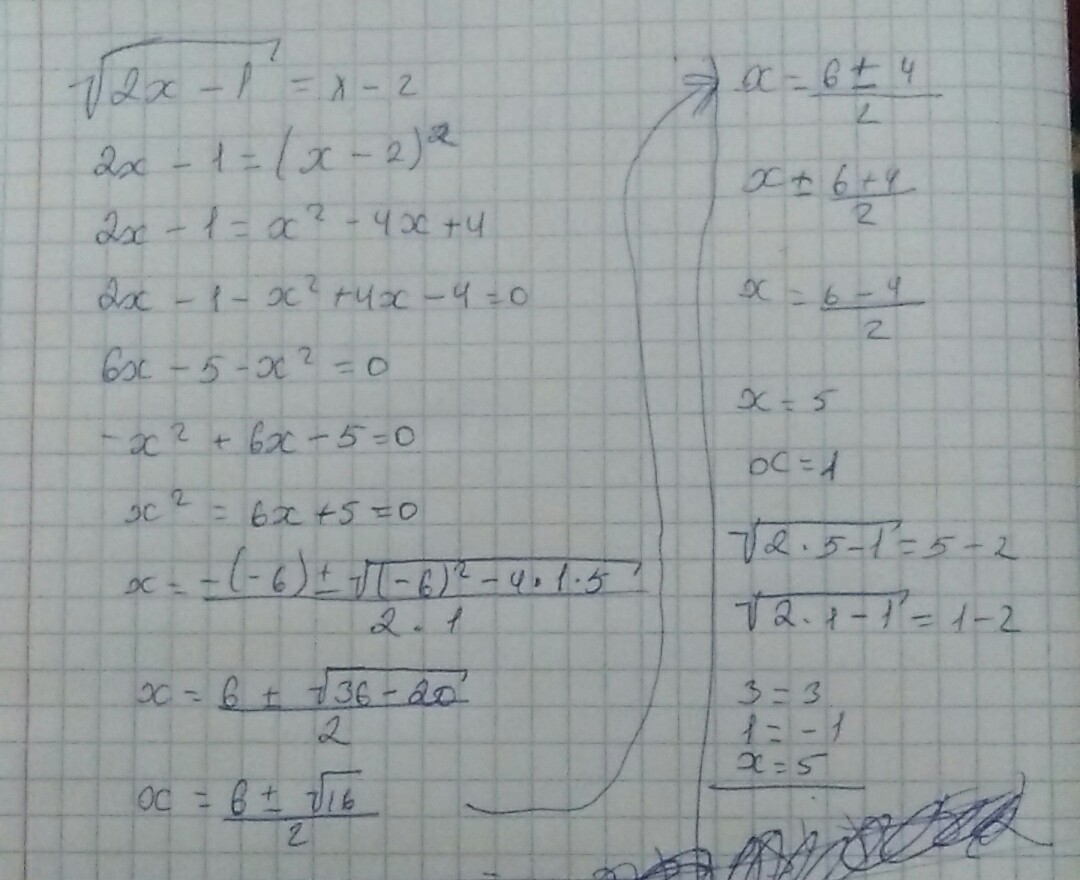 √(2x - 1) = x - 2
2x - 1 = (x - 2)²
2x - 1 = x² - 4x + 4
2x - 1 - x² + 4x - 4 = 0
6x - 5 - x² = 0
-x² + 6x - 5 = 0
x² = 6x + 5 = 0
x = (-(-6) ± √((-6)² - 4 · 1 · 5)) / (2 · 1)
x = (6 ± √(36 - 20)) / 2
x = (6 ± √16) / 2
x = (6 ± 4) / 2
x ± (6 + 4) / 2
x = (6 - 4) / 2
x = 5
x = 1
√(2 · 5 - 1) = 5 - 2
√(2 · 1 - 1) = 1 - 2
3 = 3
1 = -1
x = 5